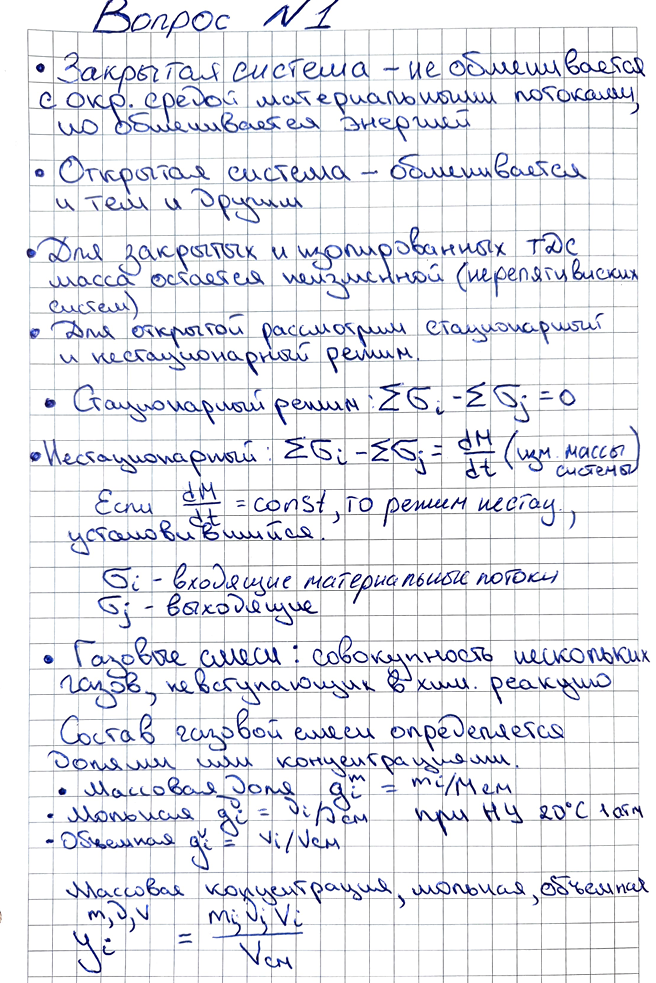 Вопрос №1
• Закрытая система – не обменивается
с окр. средой материальными потоками,
но обменивается энергией
• Открытая система – обменивается
и тем и другим
• Для закрытых и изолированных ТДС
масса остается неизменной (нерелятивиских
систем)
• Для открытой рассмотрим стационарный
и нестационарный режим.
• Стационарный режим: ΣGi - ΣGj = 0
• Нестационарный: ΣGi - ΣGj = dM/dt (изм. массы
системы)
Если dM/dt = const, то режим нестац.,
установившийся.
Gi - входящие материальные потоки
Gj - выходящие
• Газовые смеси: совокупность нескольких
газов, невступающих в хим. реакцию
Состав газовой смеси определяется
долями или концентрациями.
• Массовая доля gi^m = mi/Mсм
• Мольная gi^ν = νi/νсм при НУ 20°C 1атм
- Объемная gi^v = Vi/Vсм
Массовая концентрация, мольная, объемная
yi^m,ν,v = mi, νi, Vi / Vсм